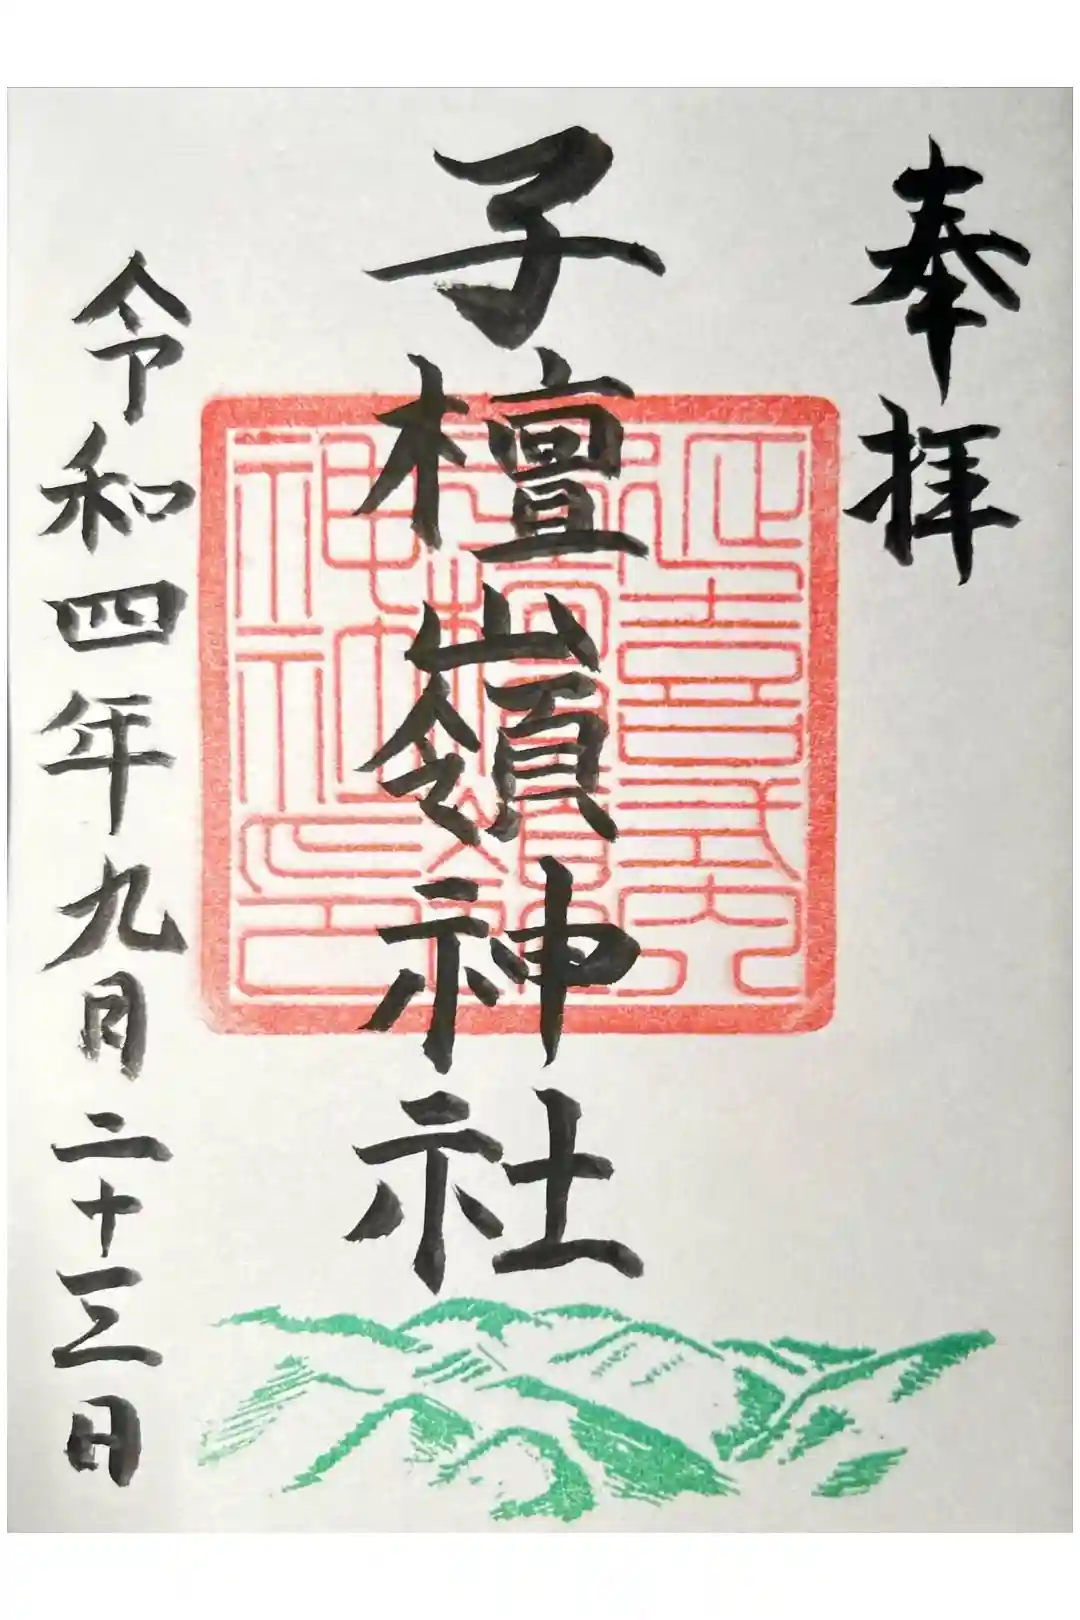 奉拝
延喜式内
子檀嶺神社
神社印
令和四年九月二十三日